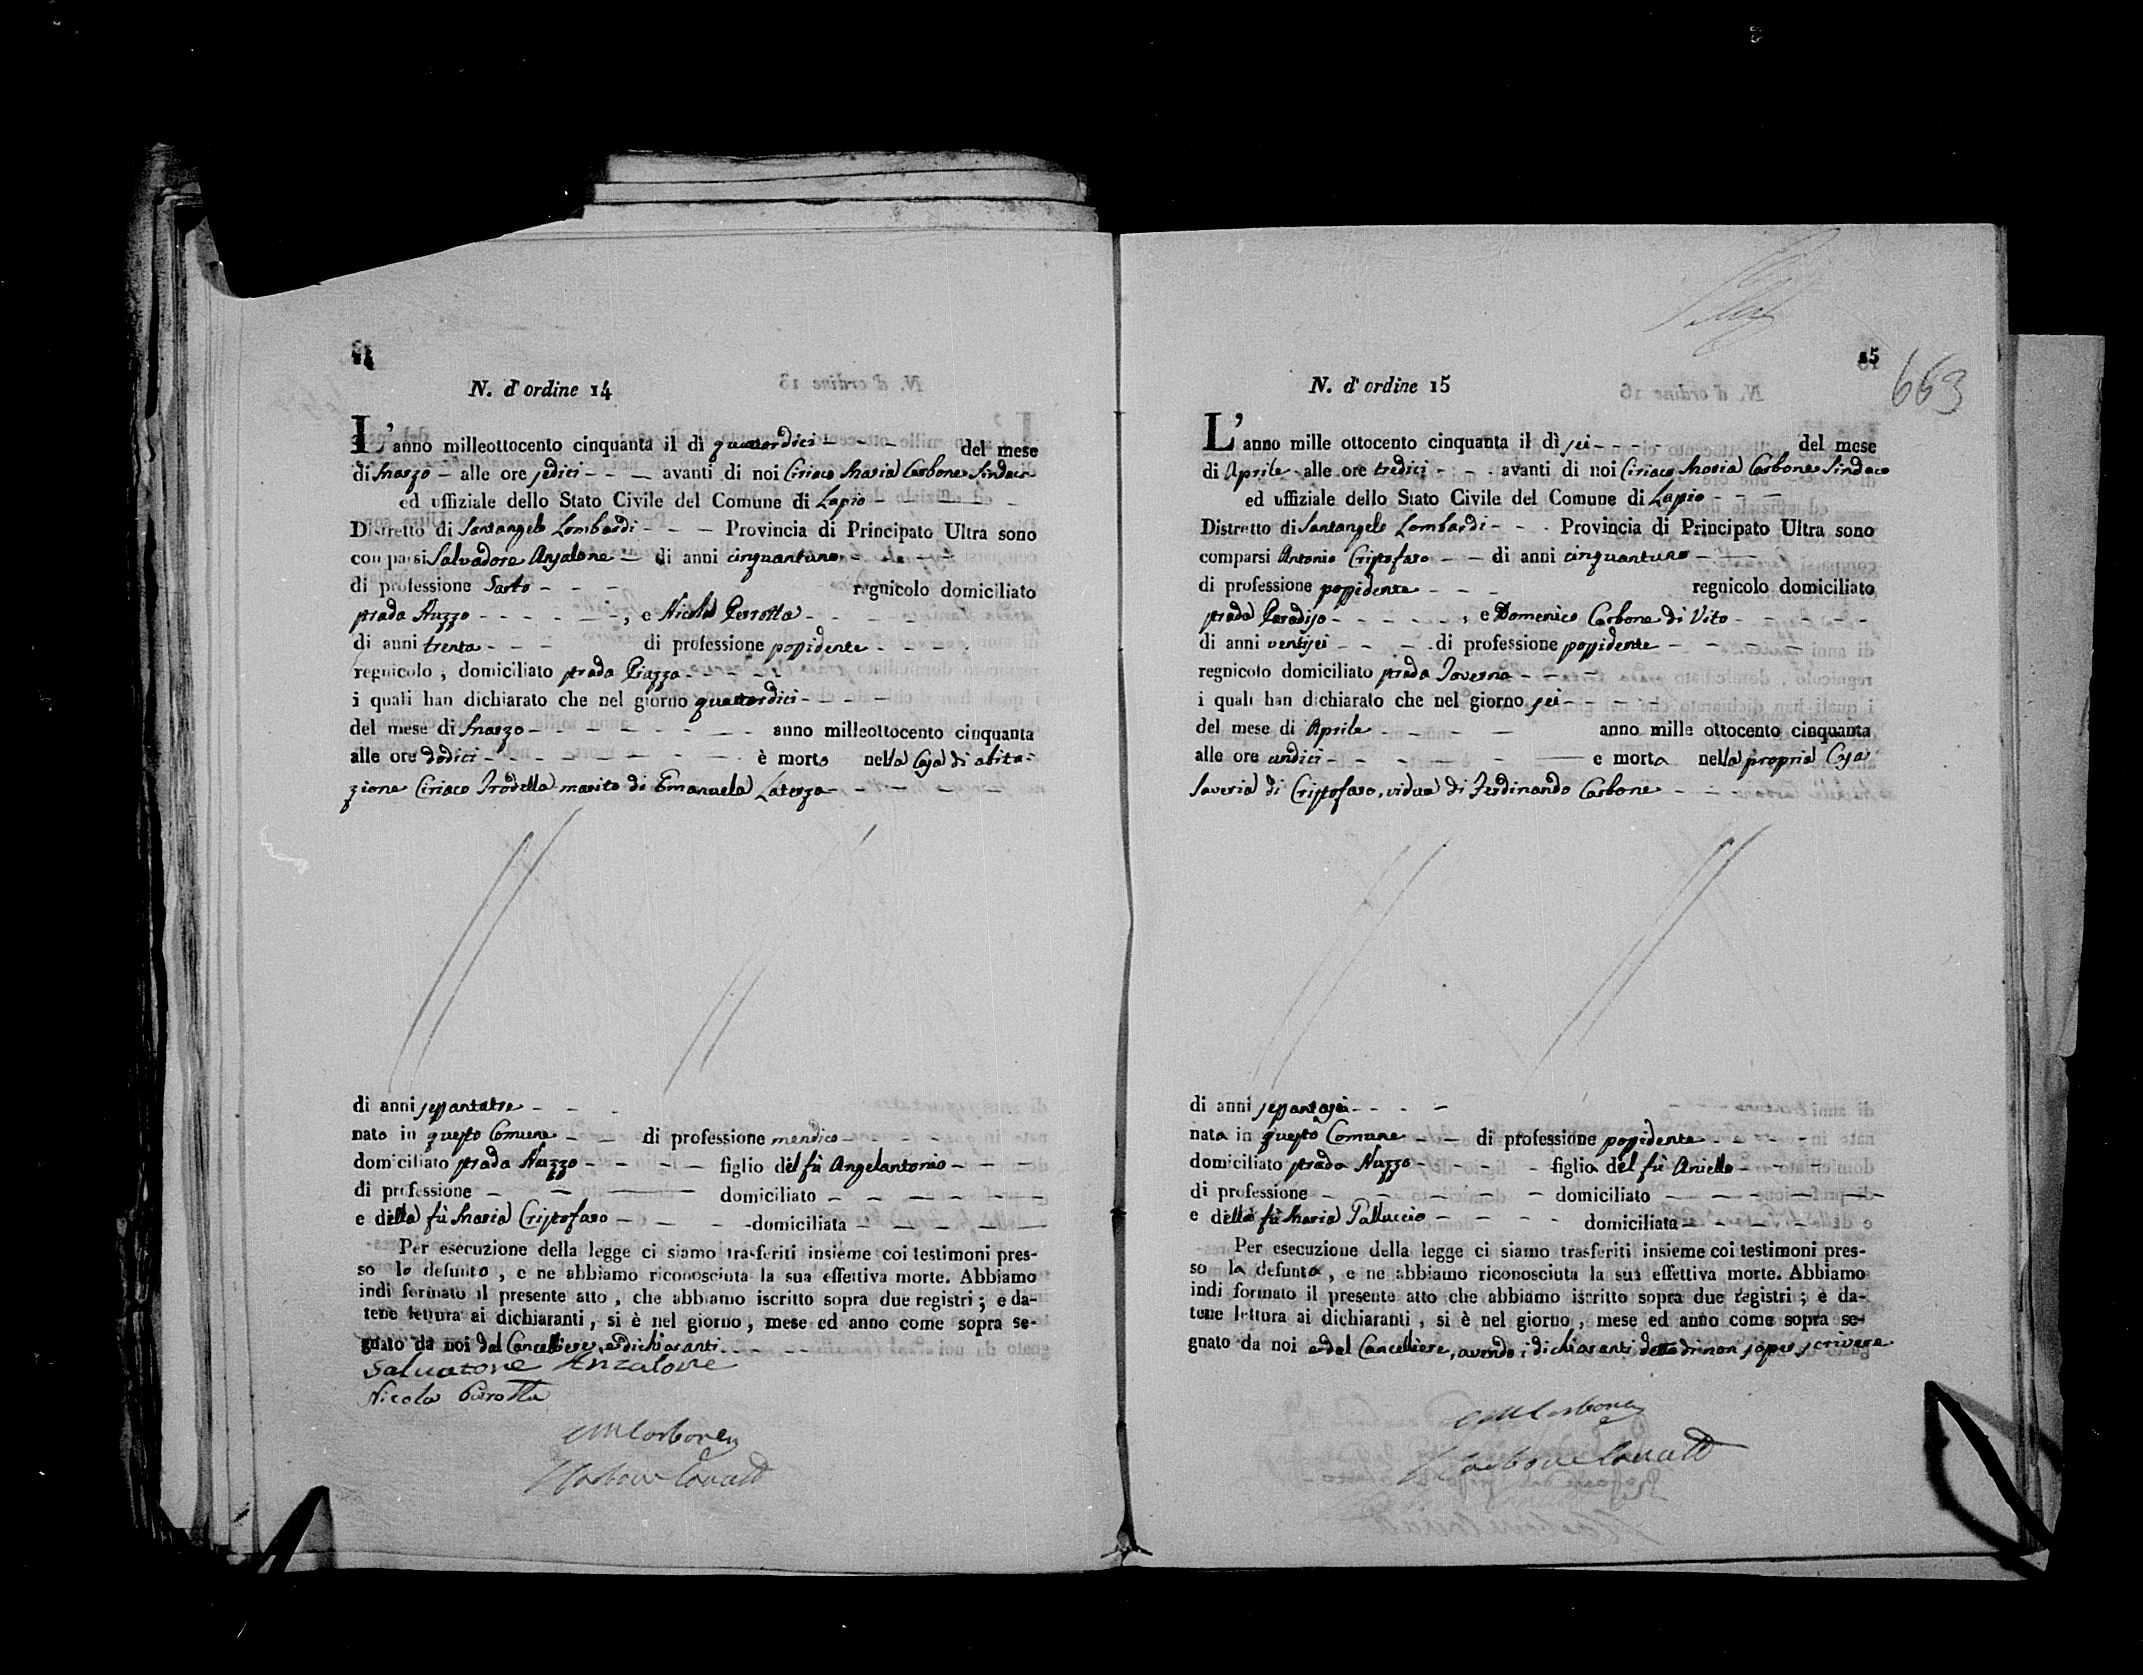 14
N. d' ordine 14
L'anno milleottocento cinquanta il dì quattordici - - - del mese
di Marzo - alle ore sedici - - - avanti di noi Ciriaco Maria Carbone Sindaco
ed uffiziale dello Stato Civile del Comune di Lapio - - - -
Distretto di Santangelo Lombardi - - - Provincia di Principato Ultra sono
comparsi Salvadore Anzalone - di anni cinquantuno - - - -
di professione Sarto - - - regnicolo domiciliato
strada Nuzzo - - - - - -, e Nicola Perrotta - - - - -
di anni trenta - - - di professione possidente - - - -
regnicolo, domiciliato strada Piazza - - - - -
i quali han dichiarato che nel giorno quattordici - - - -
del mese di Marzo - - - - - - - - anno milleottocento cinquanta
alle ore dodici - - - - - - - - è morto nella Casa di abita-
zione Ciriaco Trodella marito di Emanuela Laterza - - - - - -
di anni sessantatre - - -
nato in questo Comune - - di professione mendico - - - -
domiciliato strada Nuzzo - - - - - figlio del fù Angelantonio - - -
di professione - - - - domiciliato - - - - - - -
e della fù Maria Cristofaro - - - - domiciliata - - - - - -
Per esecuzione della legge ci siamo trasferiti insieme coi testimoni pres-
so lo defunto, e ne abbiamo riconosciuta la sua effettiva morte. Abbiamo
indi formato il presente atto, che abbiamo iscritto sopra due registri; e da-
tene lettura ai dichiaranti, si è nel giorno, mese ed anno come sopra se-
gnato da noi dal Cancelliere, e dichiaranti - - - -
Salvatore Anzalone
Nicola Perrotta
CMCarbone
15
663
N. d' ordine 15
L'anno mille ottocento cinquanta il dì sei - - - - del mese
di Aprile - alle ore tredici - - - avanti di noi Ciriaco Maria Carbone Sindaco
ed uffiziale dello Stato Civile del Comune di Lapio - - -
Distretto di Santangelo Lombardi - - - Provincia di Principato Ultra sono
comparsi Antonio Cristofaro - - di anni cinquantuno - -
di professione possidente - - - regnicolo domiciliato
strada Paradiso - - - - - -, e Domenico Carbone di Vito - - - - -
di anni ventisei - - - - di professione possidente - - - -
regnicolo domiciliato strada Taverna - - - -
i quali han dichiarato che nel giorno sei - - - -
del mese di Aprile - - - - anno mille ottocento cinquanta
alle ore undici - - - - - - e morta nella propria Casa
Saveria di Cristofaro, vidua di Ferdinando Carbone - - -
di anni sessantasei - - - -
nata in questo Comune - - di professione possidente - - - -
domiciliato strada Nuzzo - - - - - figlia del fù Aniello - - - -
di professione - - - - - - domiciliato - - - - - -
e della fù Maria Palluccio - - - - - domiciliata - - - - -
Per esecuzione della legge ci siamo trasferiti insieme coi testimoni pres-
so la defunta, e ne abbiamo riconosciuta la sua effettiva morte. Abbiamo
indi formato il presente atto che abbiamo iscritto sopra due registri; e da-
tene lettura ai dichiaranti, si è nel giorno, mese ed anno come sopra se-
gnato da noi e dal Cancelliere, avendo i dichiaranti detto di non saper scrivere
CMCarbone